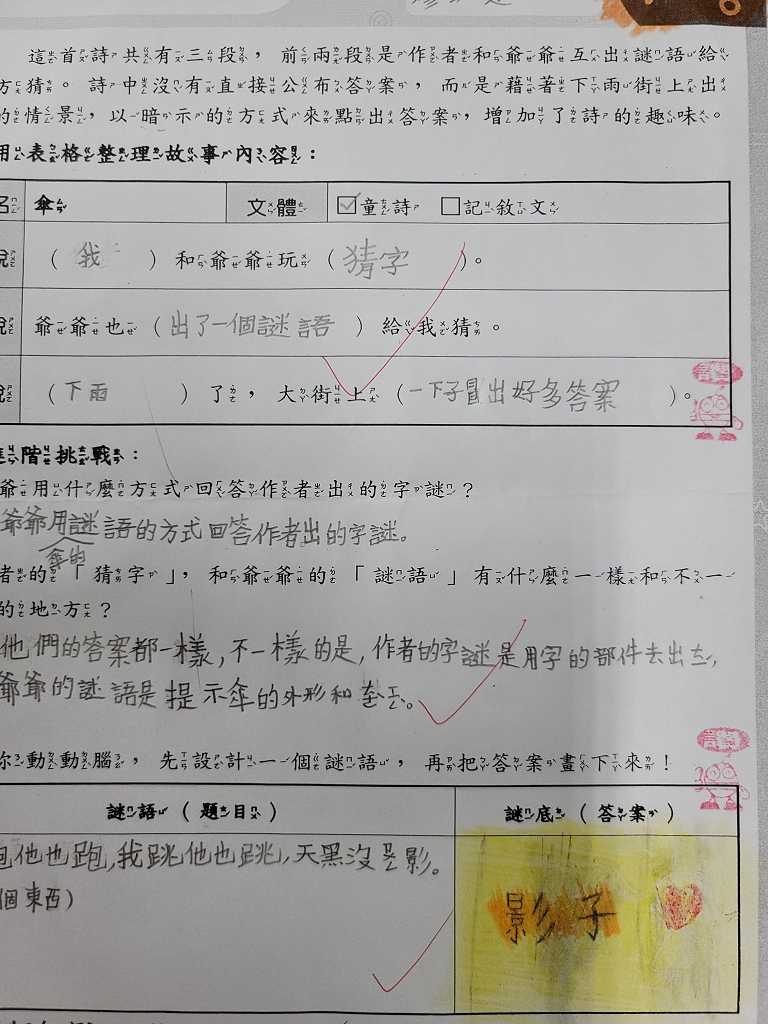 這首詩共有三段，前兩段是作者和爺爺互出謎語給
方猜。詩中沒有直接公布答案，而是藉著下雨街上出
的情景，以暗示的方式來點出答案，增加了詩的趣味。
用表格整理故事內容：
名 傘 文體 ☑童詩 □記敘文
說 （我）和爺爺玩（猜字）。
說 爺爺也（出了一個謎語）給我猜。
說 （下雨）了，大街上（一下子冒出好多答案）。
進階挑戰：
爺用什麼方式回答作者出的字謎？
爺爺用謎語的方式回答作者出的字謎。
傘的
者的「猜字」，和爺爺的「謎語」有什麼一樣和不一
的地方？
他們的答案都一樣，不一樣的是，作者的字謎是用字的部件去出ㄊㄧˊ，
爺爺的謎語是提示傘的外形和
你動動腦，先設計一個謎語，再把答案畫下來！
謎語（題目） 謎底（答案）
跑他也跑，我跳他也跳，天黑沒影。
個東西）
影子